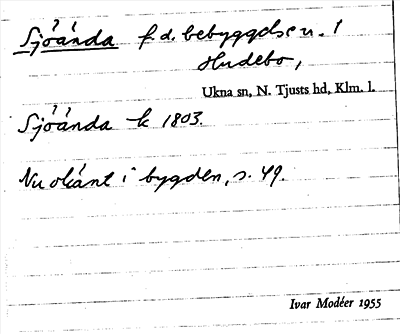 Sjöända f.d. bebyggelse u. 1
Hudebo,
Ukna sn, N. Tjusts hd, Klm. l.
Sjöända k 1803.
Nu okänt i bygden, s. 49.
Ivar Modéer 1955